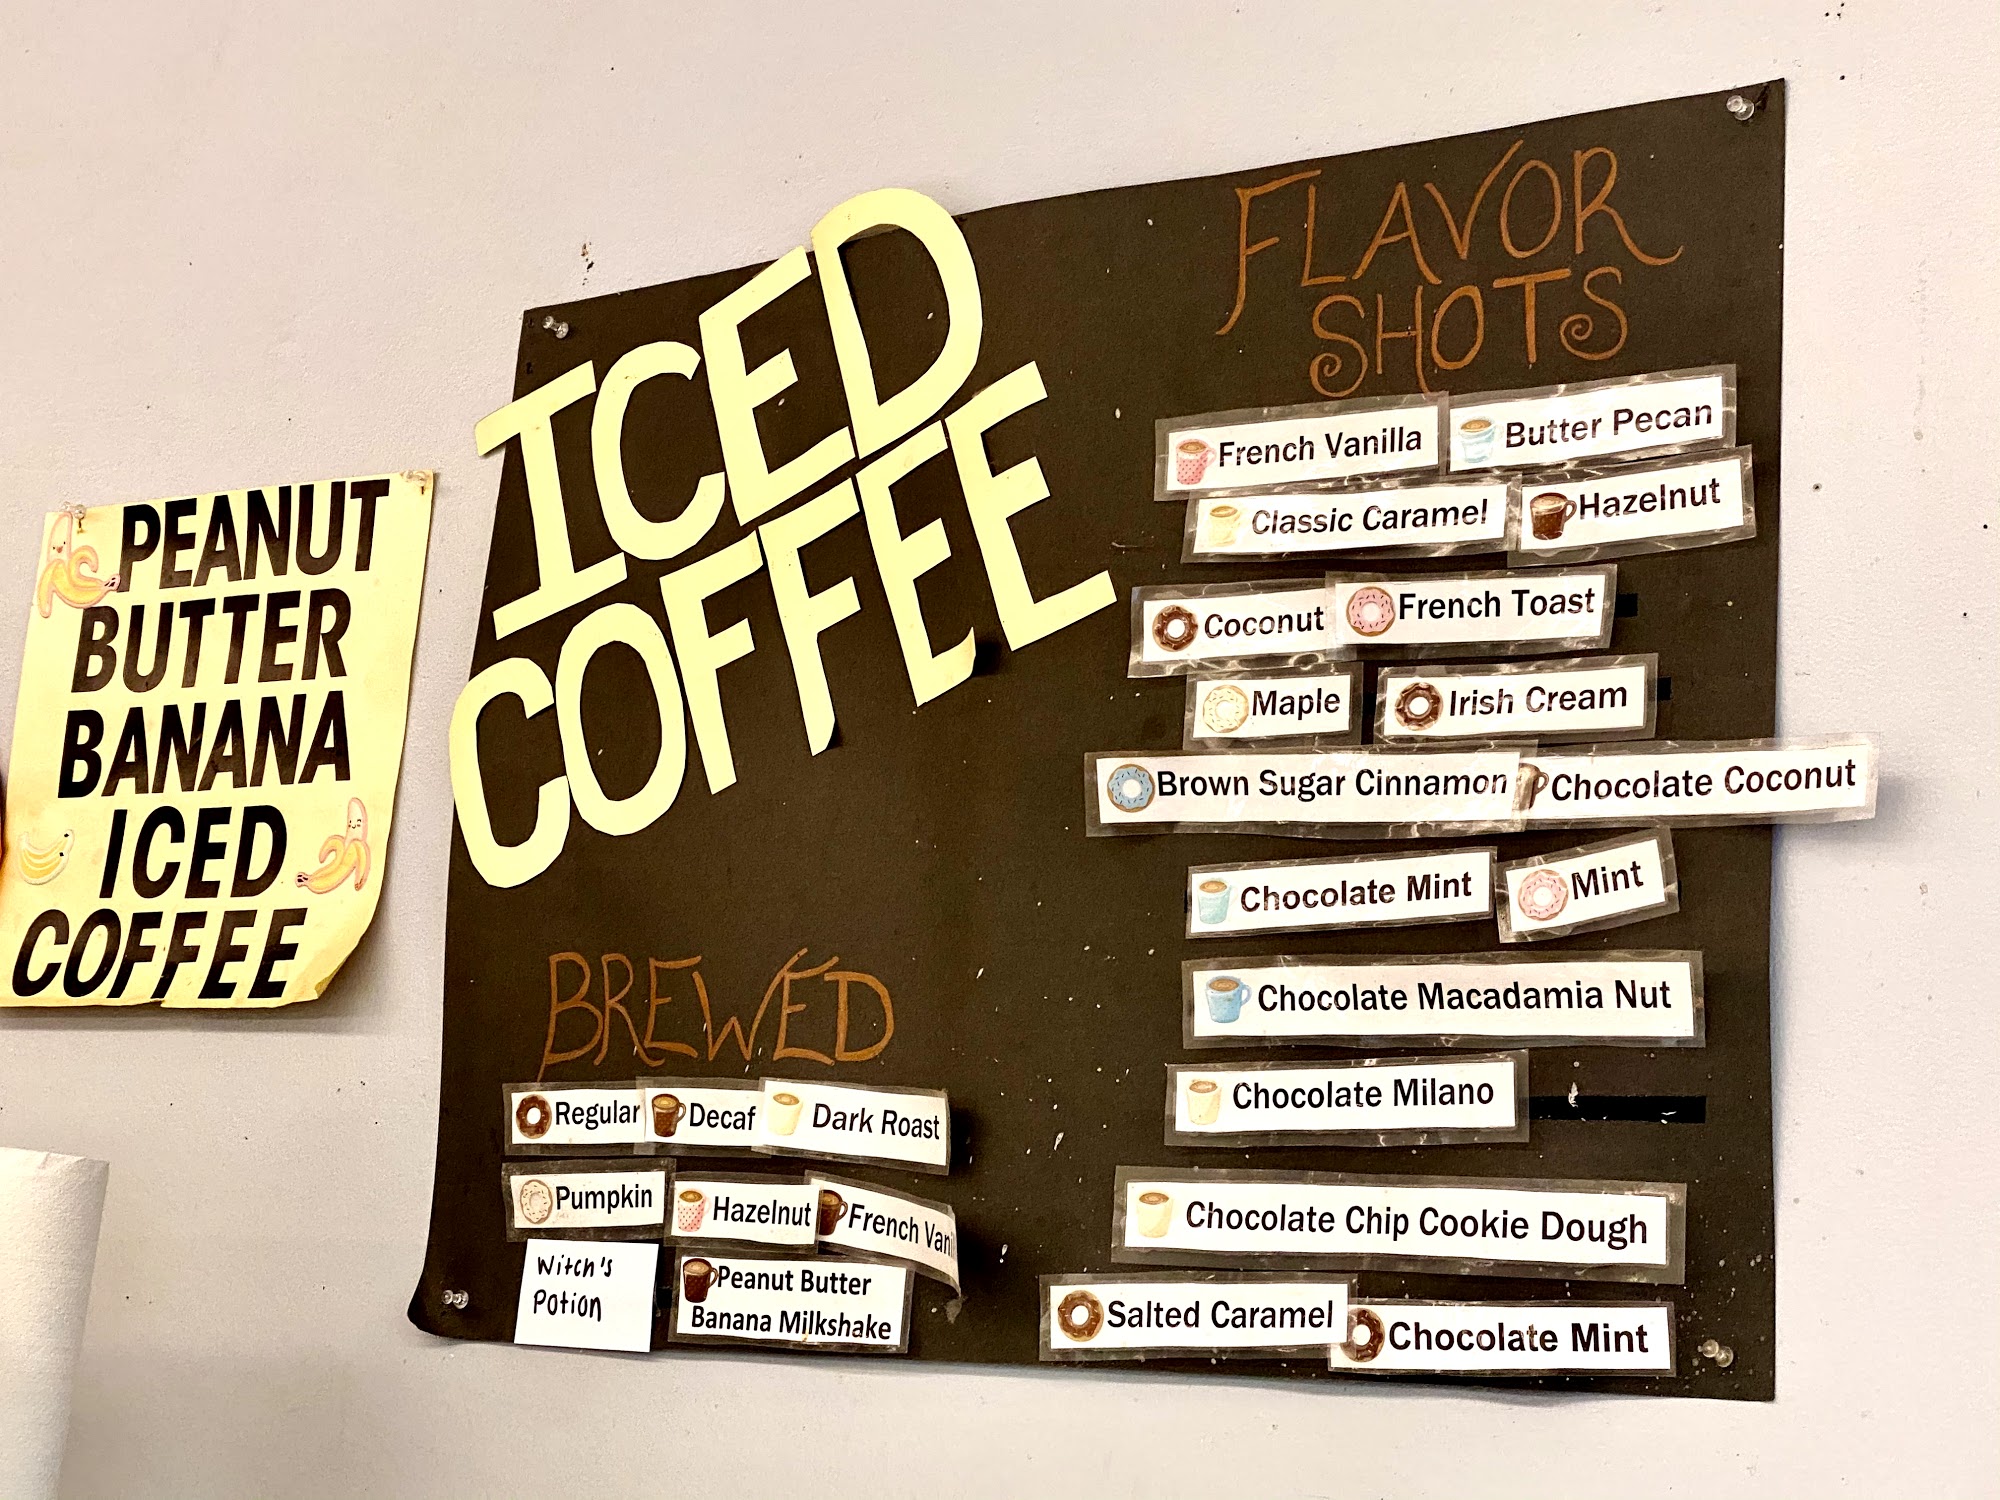 PEANUT
BUTTER
BANANA
ICED
COFFEE
ICED
COFFEE
BREWED
Regular Decaf Dark Roast
Pumpkin Hazelnut French Vani
Witch's
Potion
Peanut Butter
Banana Milkshake
FLAVOR
SHOTS
French Vanilla Butter Pecan
Classic Caramel Hazelnut
Coconut French Toast
Maple Irish Cream
Brown Sugar Cinnamon Chocolate Coconut
Chocolate Mint Mint
Chocolate Macadamia Nut
Chocolate Milano
Chocolate Chip Cookie Dough
Salted Caramel Chocolate Mint